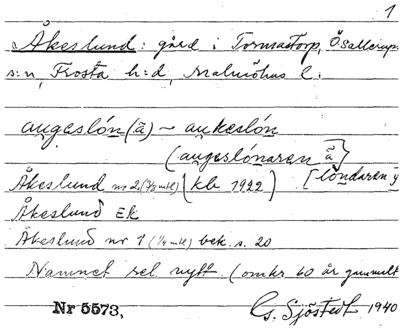 1
Åkeslund: gård i Tormastorp, Ö Sallerup
s:n, Frosta h:d, Malmöhus l:
au̯geslón (ã) ~ au̯keslón
(au̯geslónaren ã)
Åkeslund nr 2 (3/8 mtl) (kb 1922) [londaren y
Åkeslund Ek
Åkeslund nr 1 (1/4 mtl) bek. s. 20
Namnet rel. nytt (omkr. 60 år gammalt
Nr 5573, G. Sjöstedt 1940